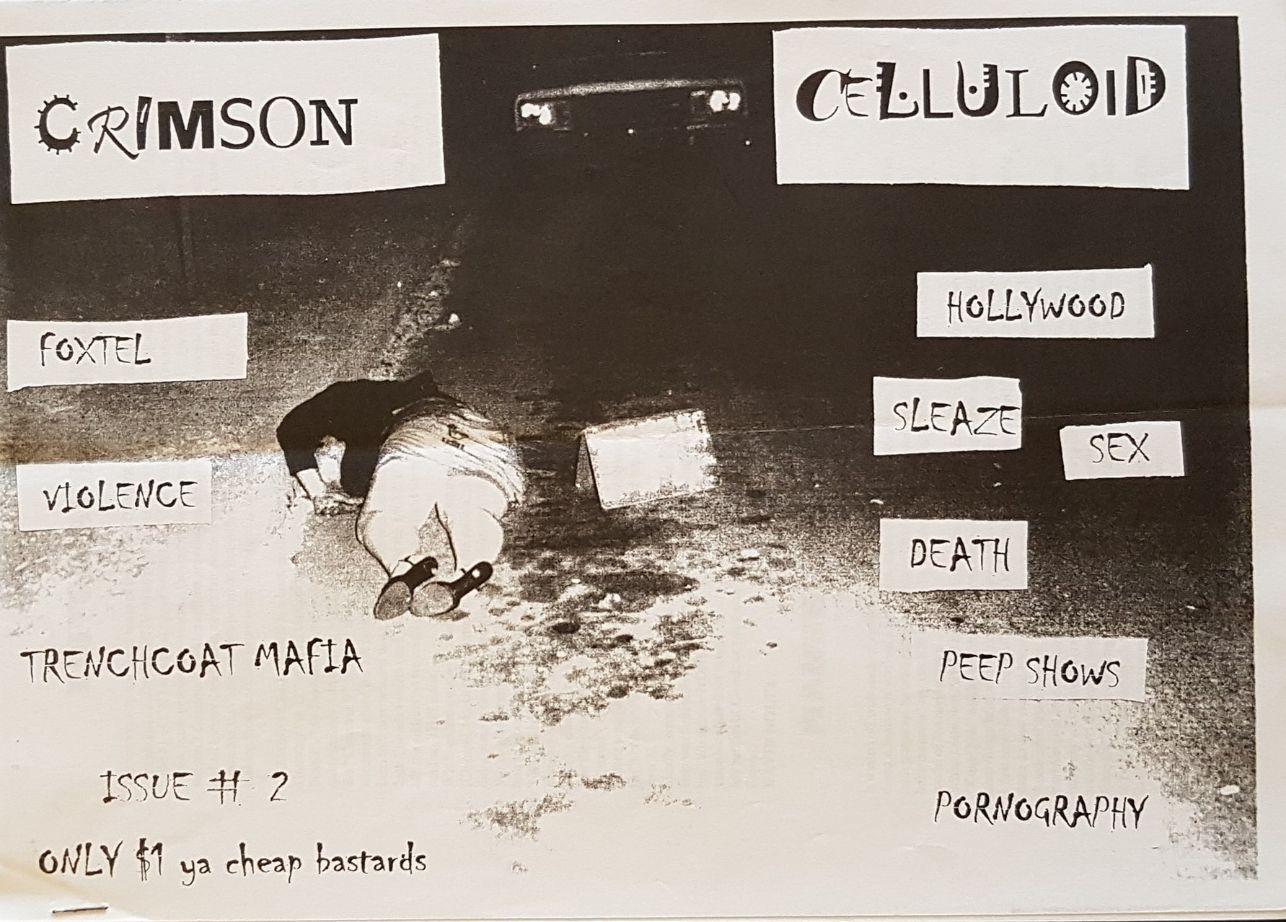 CRIMSON CELLULOID
HOLLYWOOD
FOXTEL
SLEAZE
SEX
VIOLENCE
DEATH
TRENCHCOAT MAFIA
PEEP SHOWS
ISSUE # 2
PORNOGRAPHY
ONLY $1 ya cheap bastards